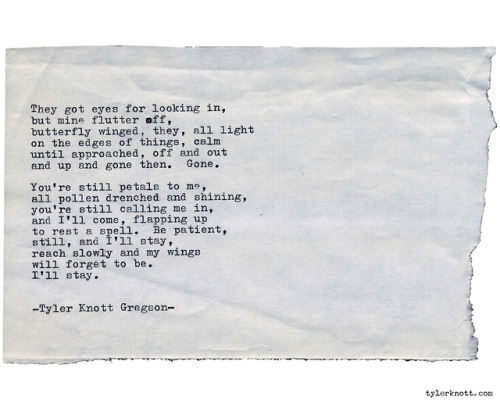 They got eyes for looking in,
but mine flutter off,
butterfly winged, they, all light
on the edges of things, calm
until approached, off and out
and up and gone then.  Gone.

You're still petals to me,
all pollen drenched and shining,
you're still calling me in,
and I'll come, flapping up
to rest a spell.  Be patient,
still, and I'll stay,
reach slowly and my wings
will forget to be.
I'll stay.

-Tyler Knott Gregson-

tylerknott.com